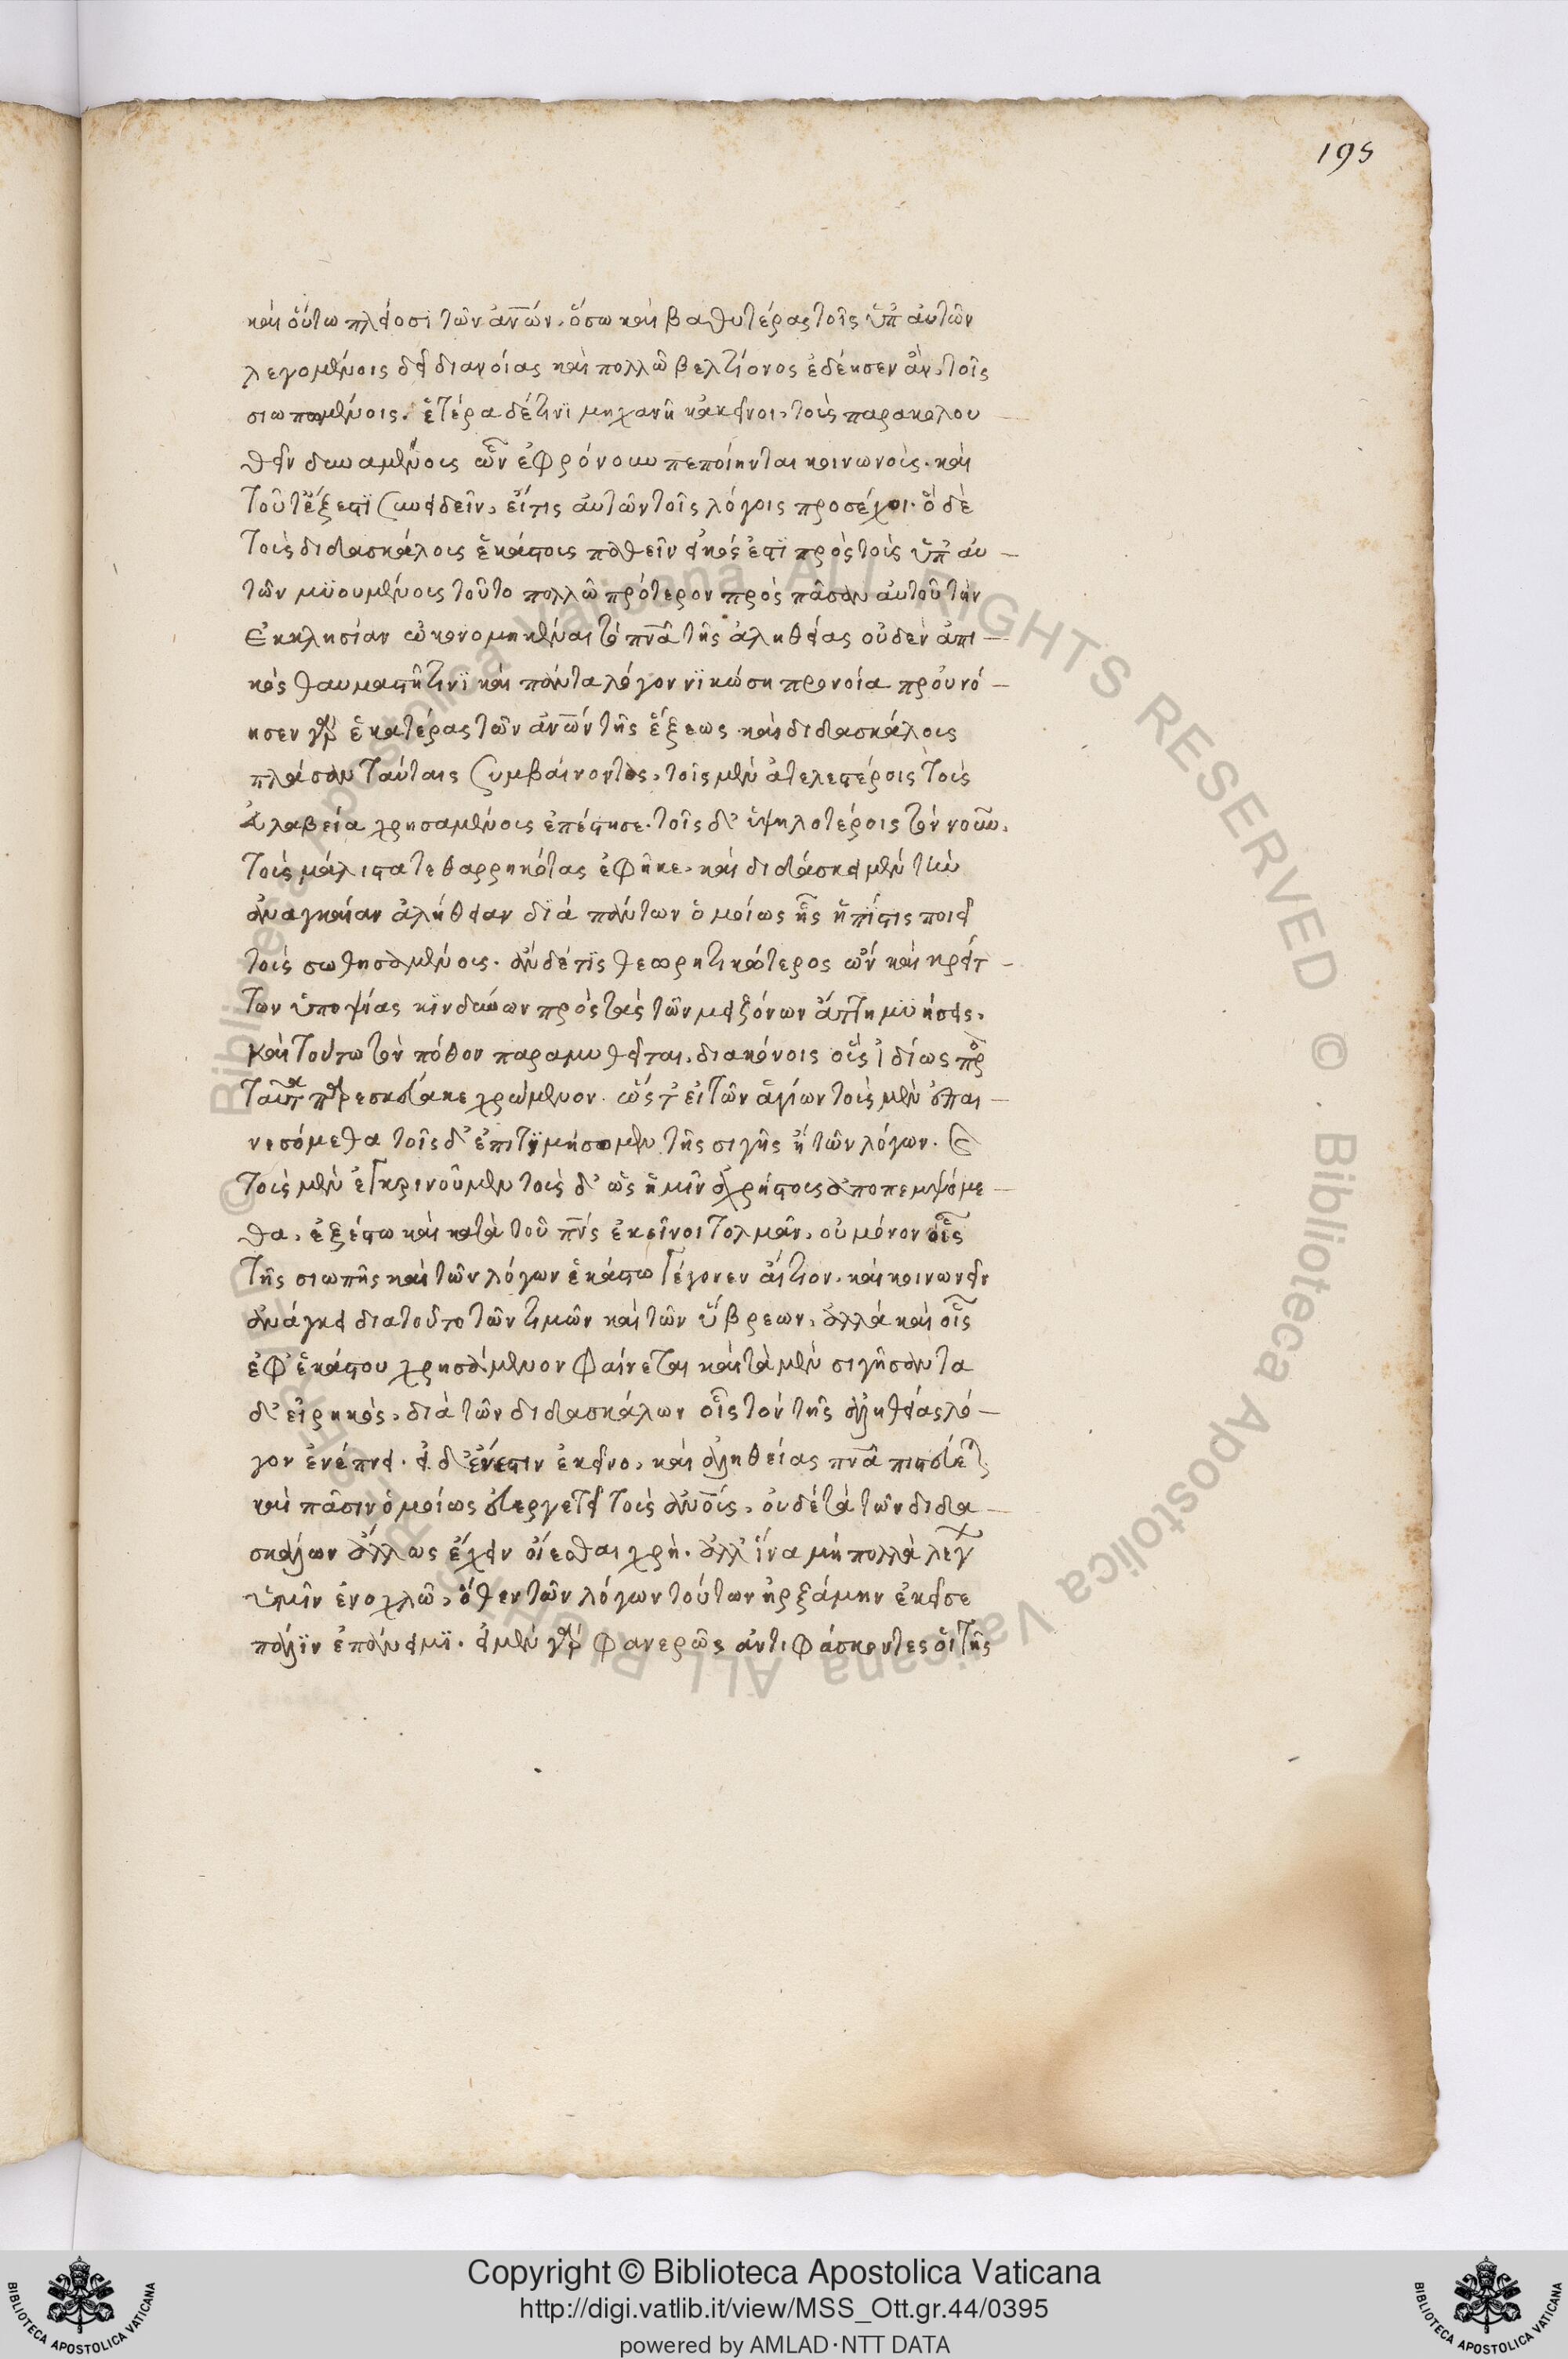 195
καὶ οὕτω πλείοσι τῶν ἀνῶν, ὅσω καὶ βαθυτέρας τοῖς ὑπ' αὐτῶν
λεγομένοις δεῖ διανοίας καὶ πολλῶ βελτίονος ἐδέησεν ἂν, τοῖς
σιωπωμένοις. ἑτέρα δέ τινι μηχανῆ κἀκεῖνοι, τοὺς παρακολου
θεῖν δυναμένους ὧν ἐφρόνουν πεποίηνται κοινωνοὺς. καὶ
τοῦτ' ἔξεστι συνιδεῖν, εἴτις αὐτῶν τοῖς λόγοις προσέχοι. ὃ δὲ
τοὺς διδασκάλους ἑκάστους ποθεῖν εἰκός ἐστι πρὸς τοὺς ὑπ' αὐ
τῶν μυουμένους τοῦτο πολλῶ πρότερον πρὸς πᾶσαν αὐτοῦ τὴν
ἐκκλησίαν ὠκονομηκέναι τὸ πνᾶ τῆς ἀληθείας οὐδὲν ἀπει
κὸς θαυμαστῆ τινι καὶ πάντα λόγον νικώση προνοία προὐνό
ησεν γὰρ ἑκατέρας τῶν ἀνῶν τῆς ἕξεως καὶ διδασκάλους
πλάσαν ταύταις συμβαίνοντας, τοῖς μὲν ἀτελεστέροις τοὺς
εὐλαβεία χρησαμένους ἐπέστησε. τοῖς δ' ὑψηλοτέροις τὸν νοῦν,
τοὺς μάλιστα τεθαρρηκότας ἐφῆκε. καὶ διδάσκει μὲν τὴν
ἀναγκαίαν ἀλήθειαν διὰ πάντων ὁμοίως ἧς ἡ πίστις ποιεῖ
τοὺς σωθησομένους. ἂν δέ τις θεωρητικώτερος ὢν καὶ κρείτ
των ὑποψίας κινδύνων πρὸς τὰς τῶν μειζόνων ἅπτη μυήσεις,
καὶ τούτω τὸν πόθον παραμυθεῖται, διακόνοις οἷς ἰδίως πρὸς
ταῦτα παρεσκεύακε χρώμενον. ὥστ' εἰ τῶν ἁγίων τοὺς μὲν ἐπαι
νεσόμεθα τοῖς δ' ἐπιτιμήσομεν τῆς σιγῆς ἢ τῶν λόγων. καὶ
τοὺς μὲν ἐγκρινοῦμεν τοὺς δ' ὡς ἡμῖν ἀχρήστους ἀποπεμψόμε
θα, ἐξέστω καὶ κατὰ τοῦ πνς ἐκεῖνοι τολμᾶν, οὐ μόνον οἷς
τῆς σιωπῆς καὶ τῶν λόγων ἑκάστω γέγονεν αἴτιον. καὶ κοινωνεῖν
ἀνάγκη διατοῦτο τῶν τιμῶν καὶ τῶν ὕβρεων, ἀλλὰ καὶ οἷς
ἐφ' ἑκάστου χρησάμενον φαίνεται καὶ τὰ μὲν σιγῆσαν τὰ
δ' εἰρηκὸς, διὰ τῶν διδασκάλων οἷς τὸν τῆς ἀληθείας λό
γον ἐνέπνει. εἰ δ' ἕν ἐστιν ἐκεῖνο, καὶ ἀληθείας πνᾶ πιστεύετ
καὶ πᾶσιν ὁμοίως στεργετε τοὺς ἀνοὺς, οὐδὲ τὰ τῶν διδα
σκάλων ἄλλως ἔχειν οἴεσθαι χρή. ἀλλ' ἵνα μὴ πολλὰ λέγων
ὑμῖν ἐνοχλῶ, ὅθεν τῶν λόγων τούτων ἠρξάμην ἐκεῖσε
πάλιν ἐπάνειμι. εἰ μὲν γὰρ φανερῶς ἀντιφάσκοντες οἱ τῆς
Copyright © Biblioteca Apostolica Vaticana
http://digi.vatlib.it/view/MSS_Ott.gr.44/0395
powered by AMLAD·NTT DATA